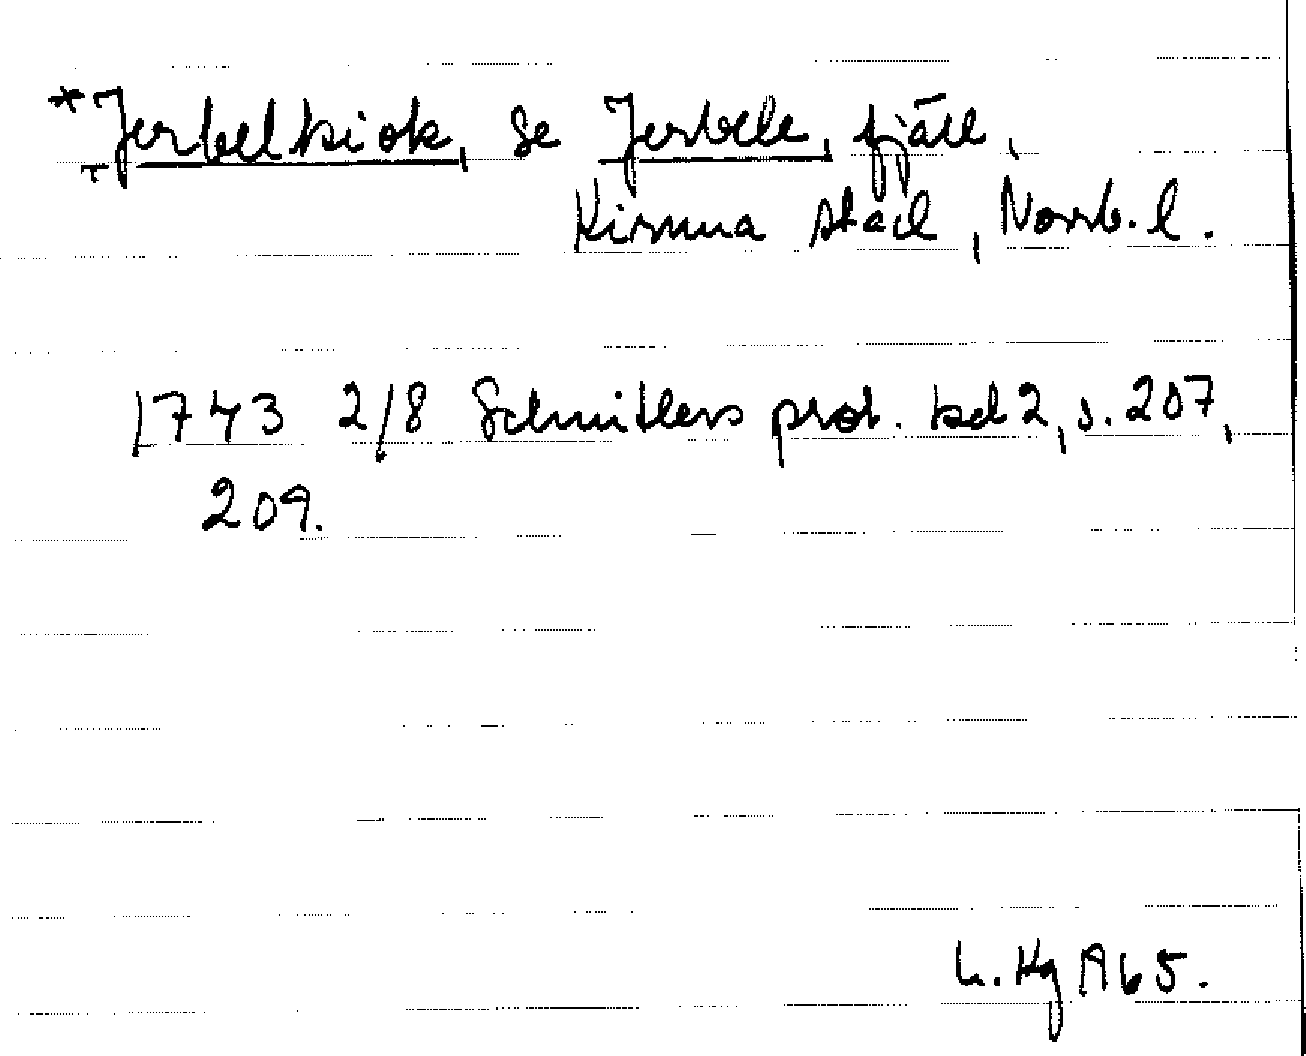 *Jerbelkiok, se Jerbele, fjäll,
Kiruna stad, Norrb. l.
1743 2/8 Schnitlers prot. bd 2, s. 207,
209.
L. Hg A65.